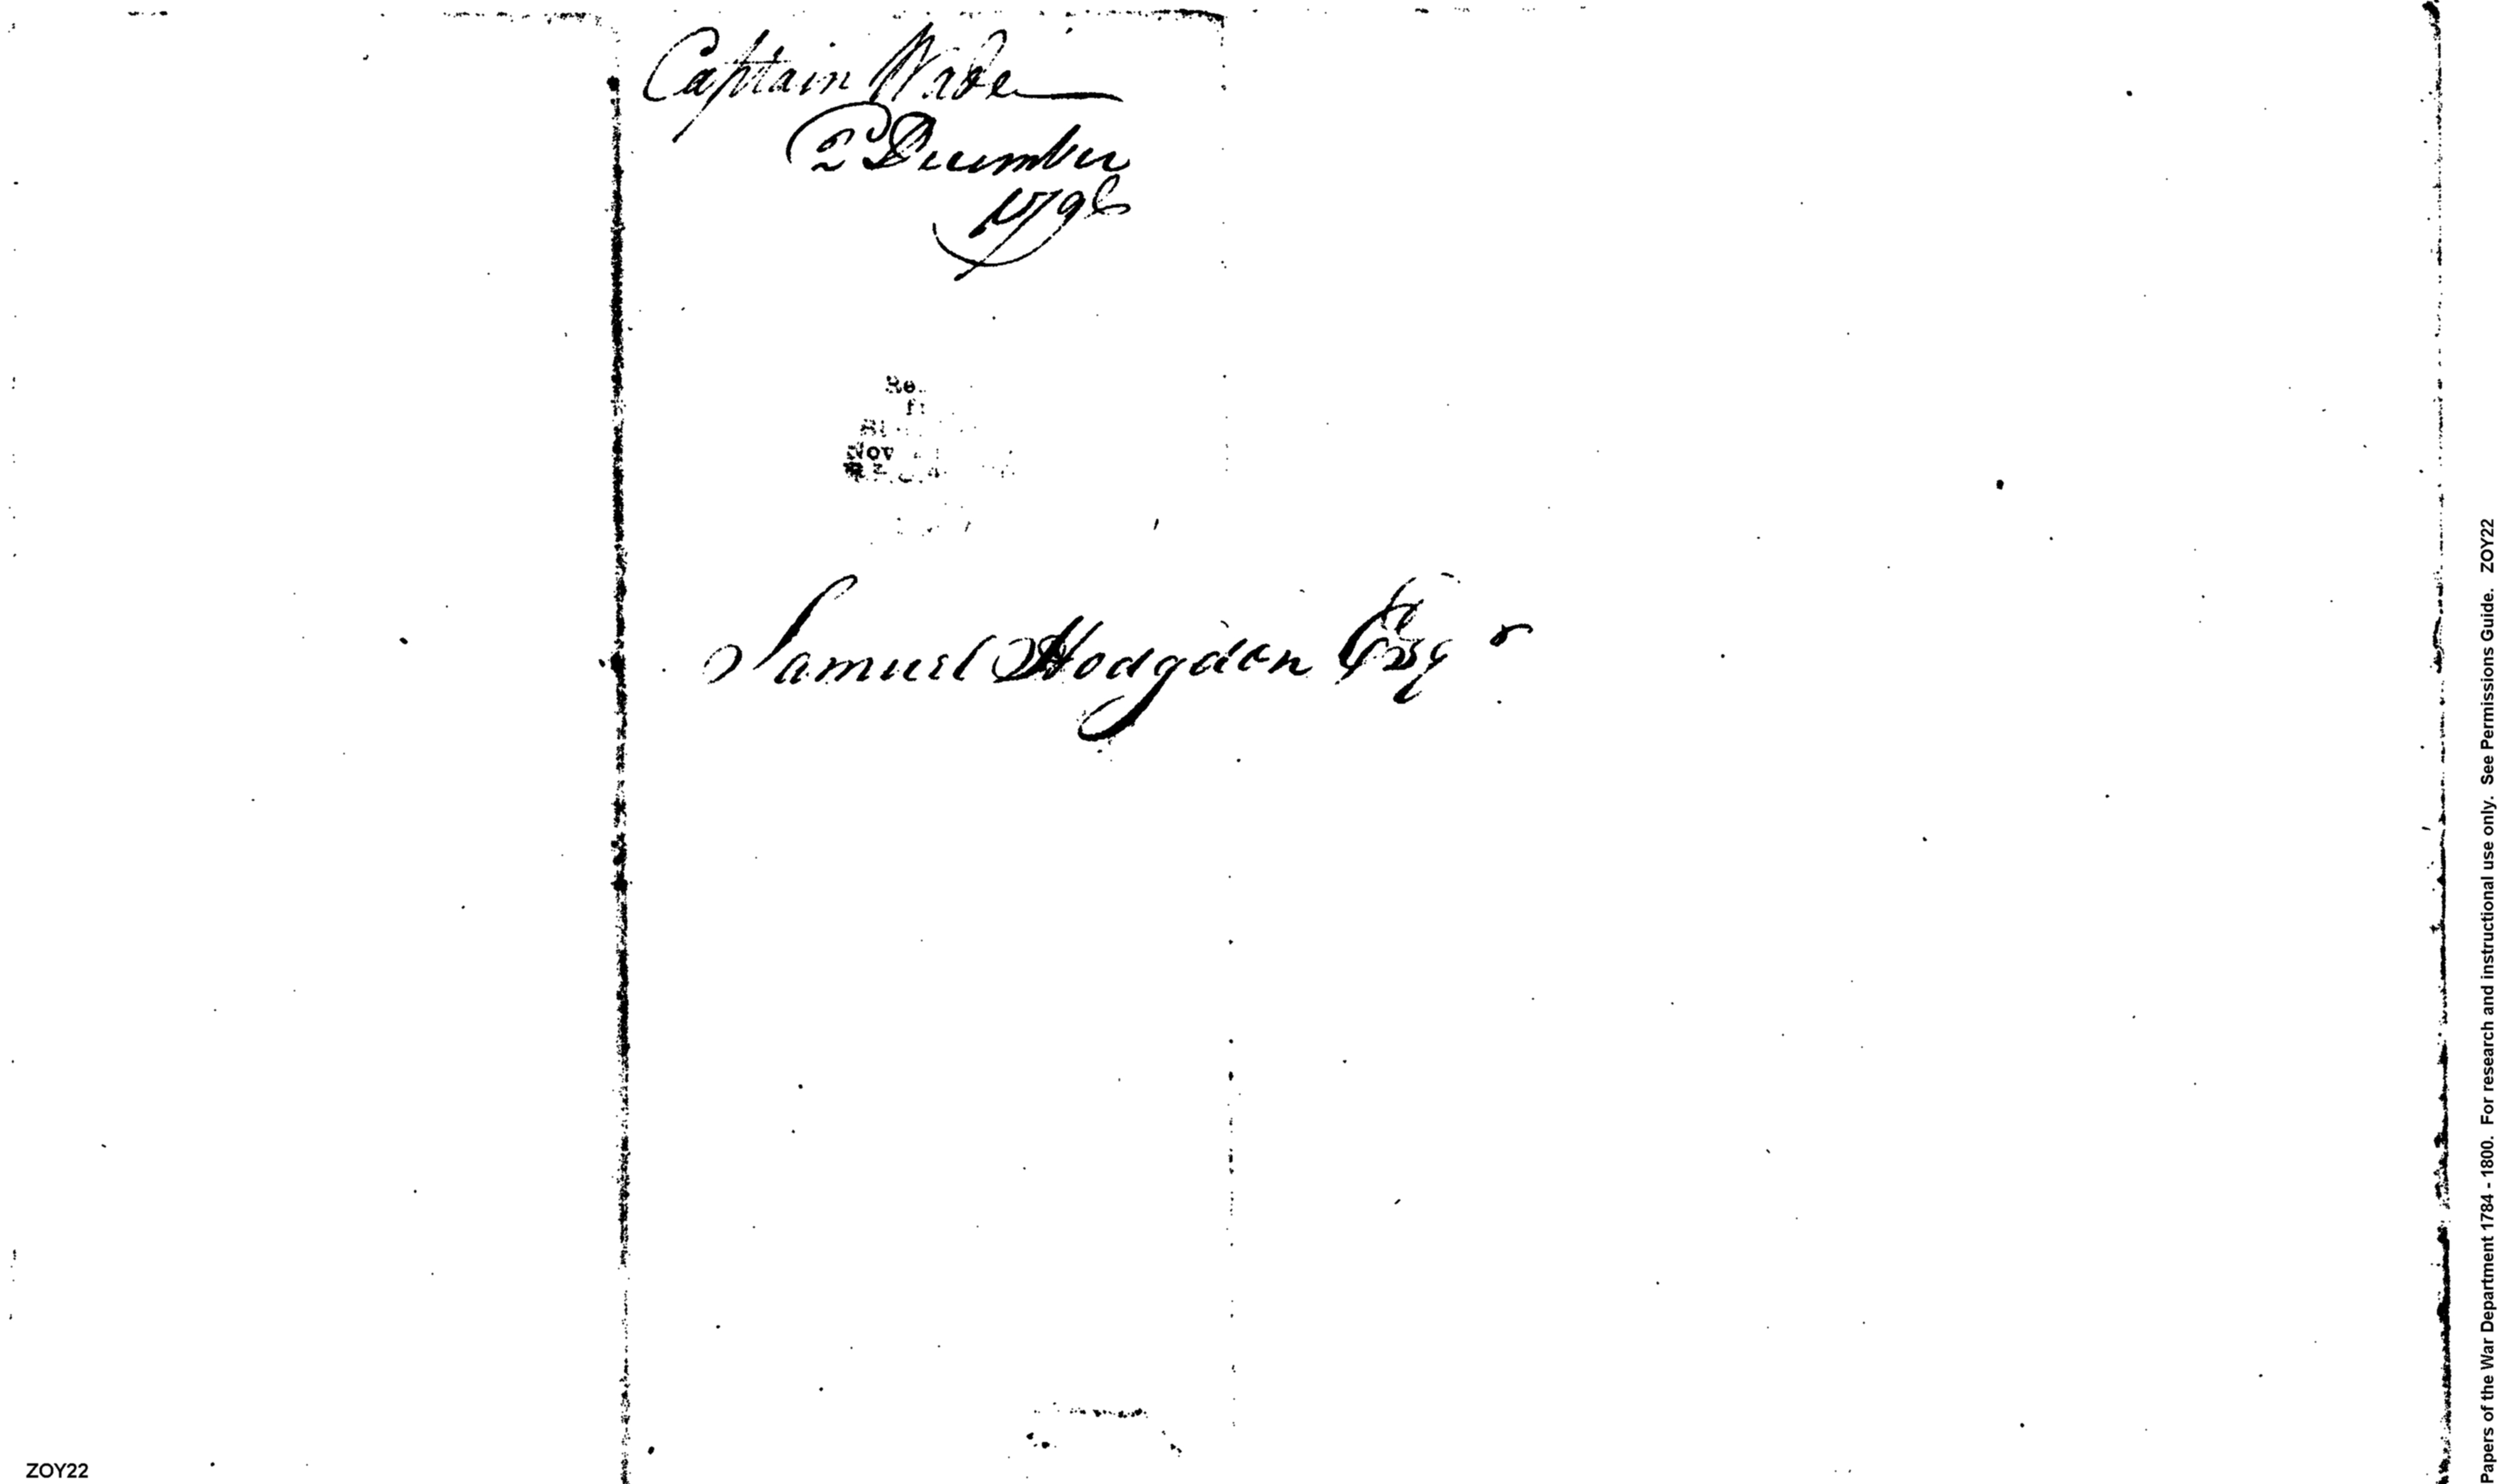 Captain
2d December
179
Nov
Samuel Hodgdon Esqr
Papers of the War Department 1784 - 1800. For research and instructional use only. See Permissions Guide. ZOY22
ZOY22